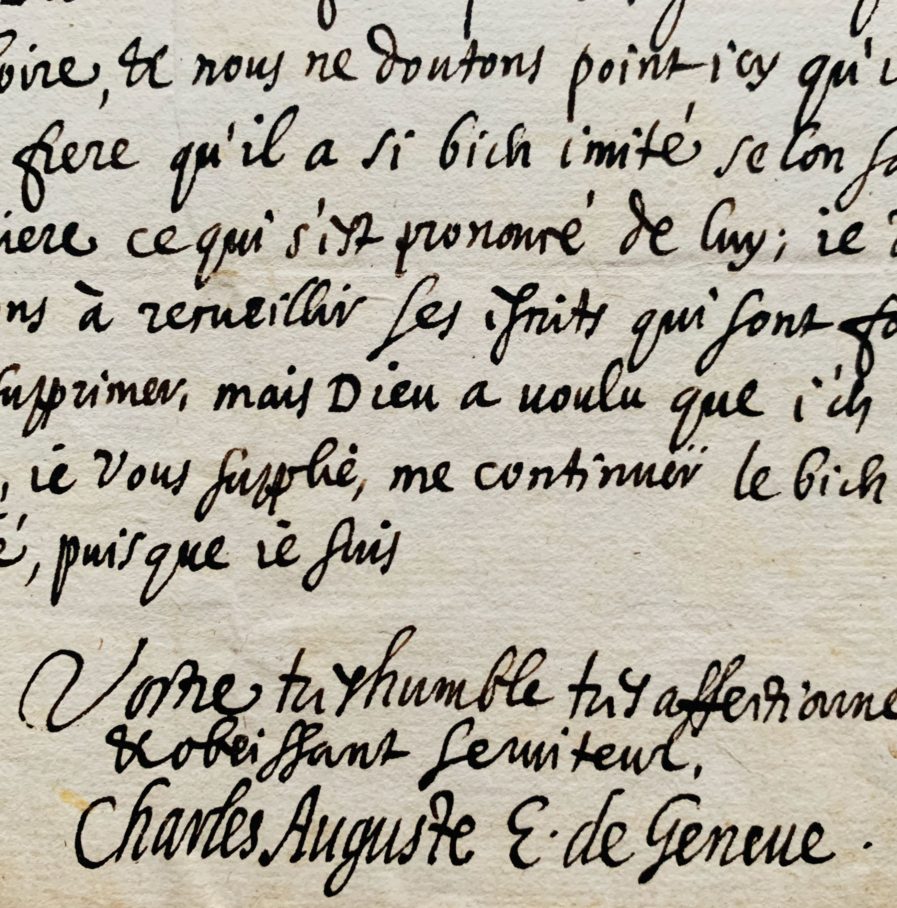 oire, & nous ne doutons point icy qu'i
frere qu'il a si bien imité selon sa
iere ce qui s'est prononcé de luy; ie
ons à recueillir ses fruits qui sont fo
supprimer, mais Dieu a uoulu que i'en
, ie Vous supplie, me continuër le bien
é, puis que ie suis
Vostre tres humble tres affectionné
& obeissant seruiteur.
Charles Auguste E. de Geneue.